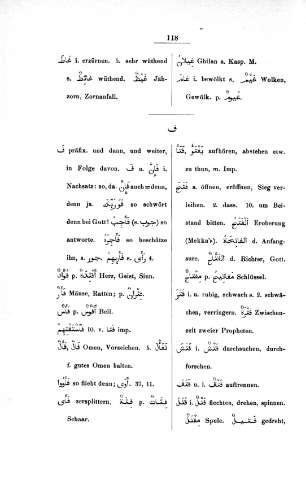 118
غَاظَ i. erzürnen. i. sehr wüthend
s. غَائِظٌ wüthend. غَيْظٌ Jäh-
zorn, Zornanfall.
غَيْلَانُ Ghilan s. Kasp. M.
غَامَ i. bewölkt s. غَيْمٌ Wolken,
Gewölk. p. غُيُومٌ
ف
فَ präfix. und dann, und weiter,
in Folge davon. فَ u. فَإِنَّ im
Nachsatz: so, da. فَإِنْ auch wenn,
denn, ja فَوَرَبِّكَ so schwört
denn bei Gott! فَأَجِبْ (s. جوب) so
antworte. فَأَجِرْهُ so beschütze
ihn, s. جور. فَأَرِيهِمْ s. رأى 4.
فُؤَادٌ p. أَفْئِدَةٌ Herz, Geist, Sinn.
فَأْرٌ Mäuse, Ratten; p. فِئْرَانٌ
فَأْسٌ p. أَفْؤُسٌ Beil.
فَاسْتَفْتِهِمْ 10. v. فتا imp.
فَأْلٌ, فَالٌ Omen, Vorzeichen. تَفَاءَلَ
f. gutes Omen halten.
فَأْوُوا so flieht denn; أوى. 33, 11.
فَأَى zersplittern. فِئَةٌ p. فِئَاتٌ
Schaar.
فَتَأَ, يَفْتَؤُ aufhören, abstehen etw.
zu thun, m. Imp.
فَتَحَ a. öffnen, eröffnen, Sieg ver-
leihen. 2. dass. 10. um Bei-
stand bitten. اَلْفَتْحُ Eroberung
(Mekka's). اَلْفَاتِحَةُ d. Anfang-
sure. اَلْفَتَّاحُ d. Richter, Gott.
مِفْتَاحٌ p. مَفَاتِيحُ Schlüssel.
فَتَرَ i. u. ruhig, schwach s. 2. schwä-
chen, verringern. فَتْرَةٌ Zwischen-
zeit zweier Propheten.
فَتَشَ, فَتَّشَ durchsuchen, durch-
forschen.
فَتَقَ u. i. فَتَّقَ auftrennen.
فَتَلَ i. فَتَّلَ flechten, drehen, spinnen.
مِفْتَلٌ Spule. فَتِيلٌ gedreht,